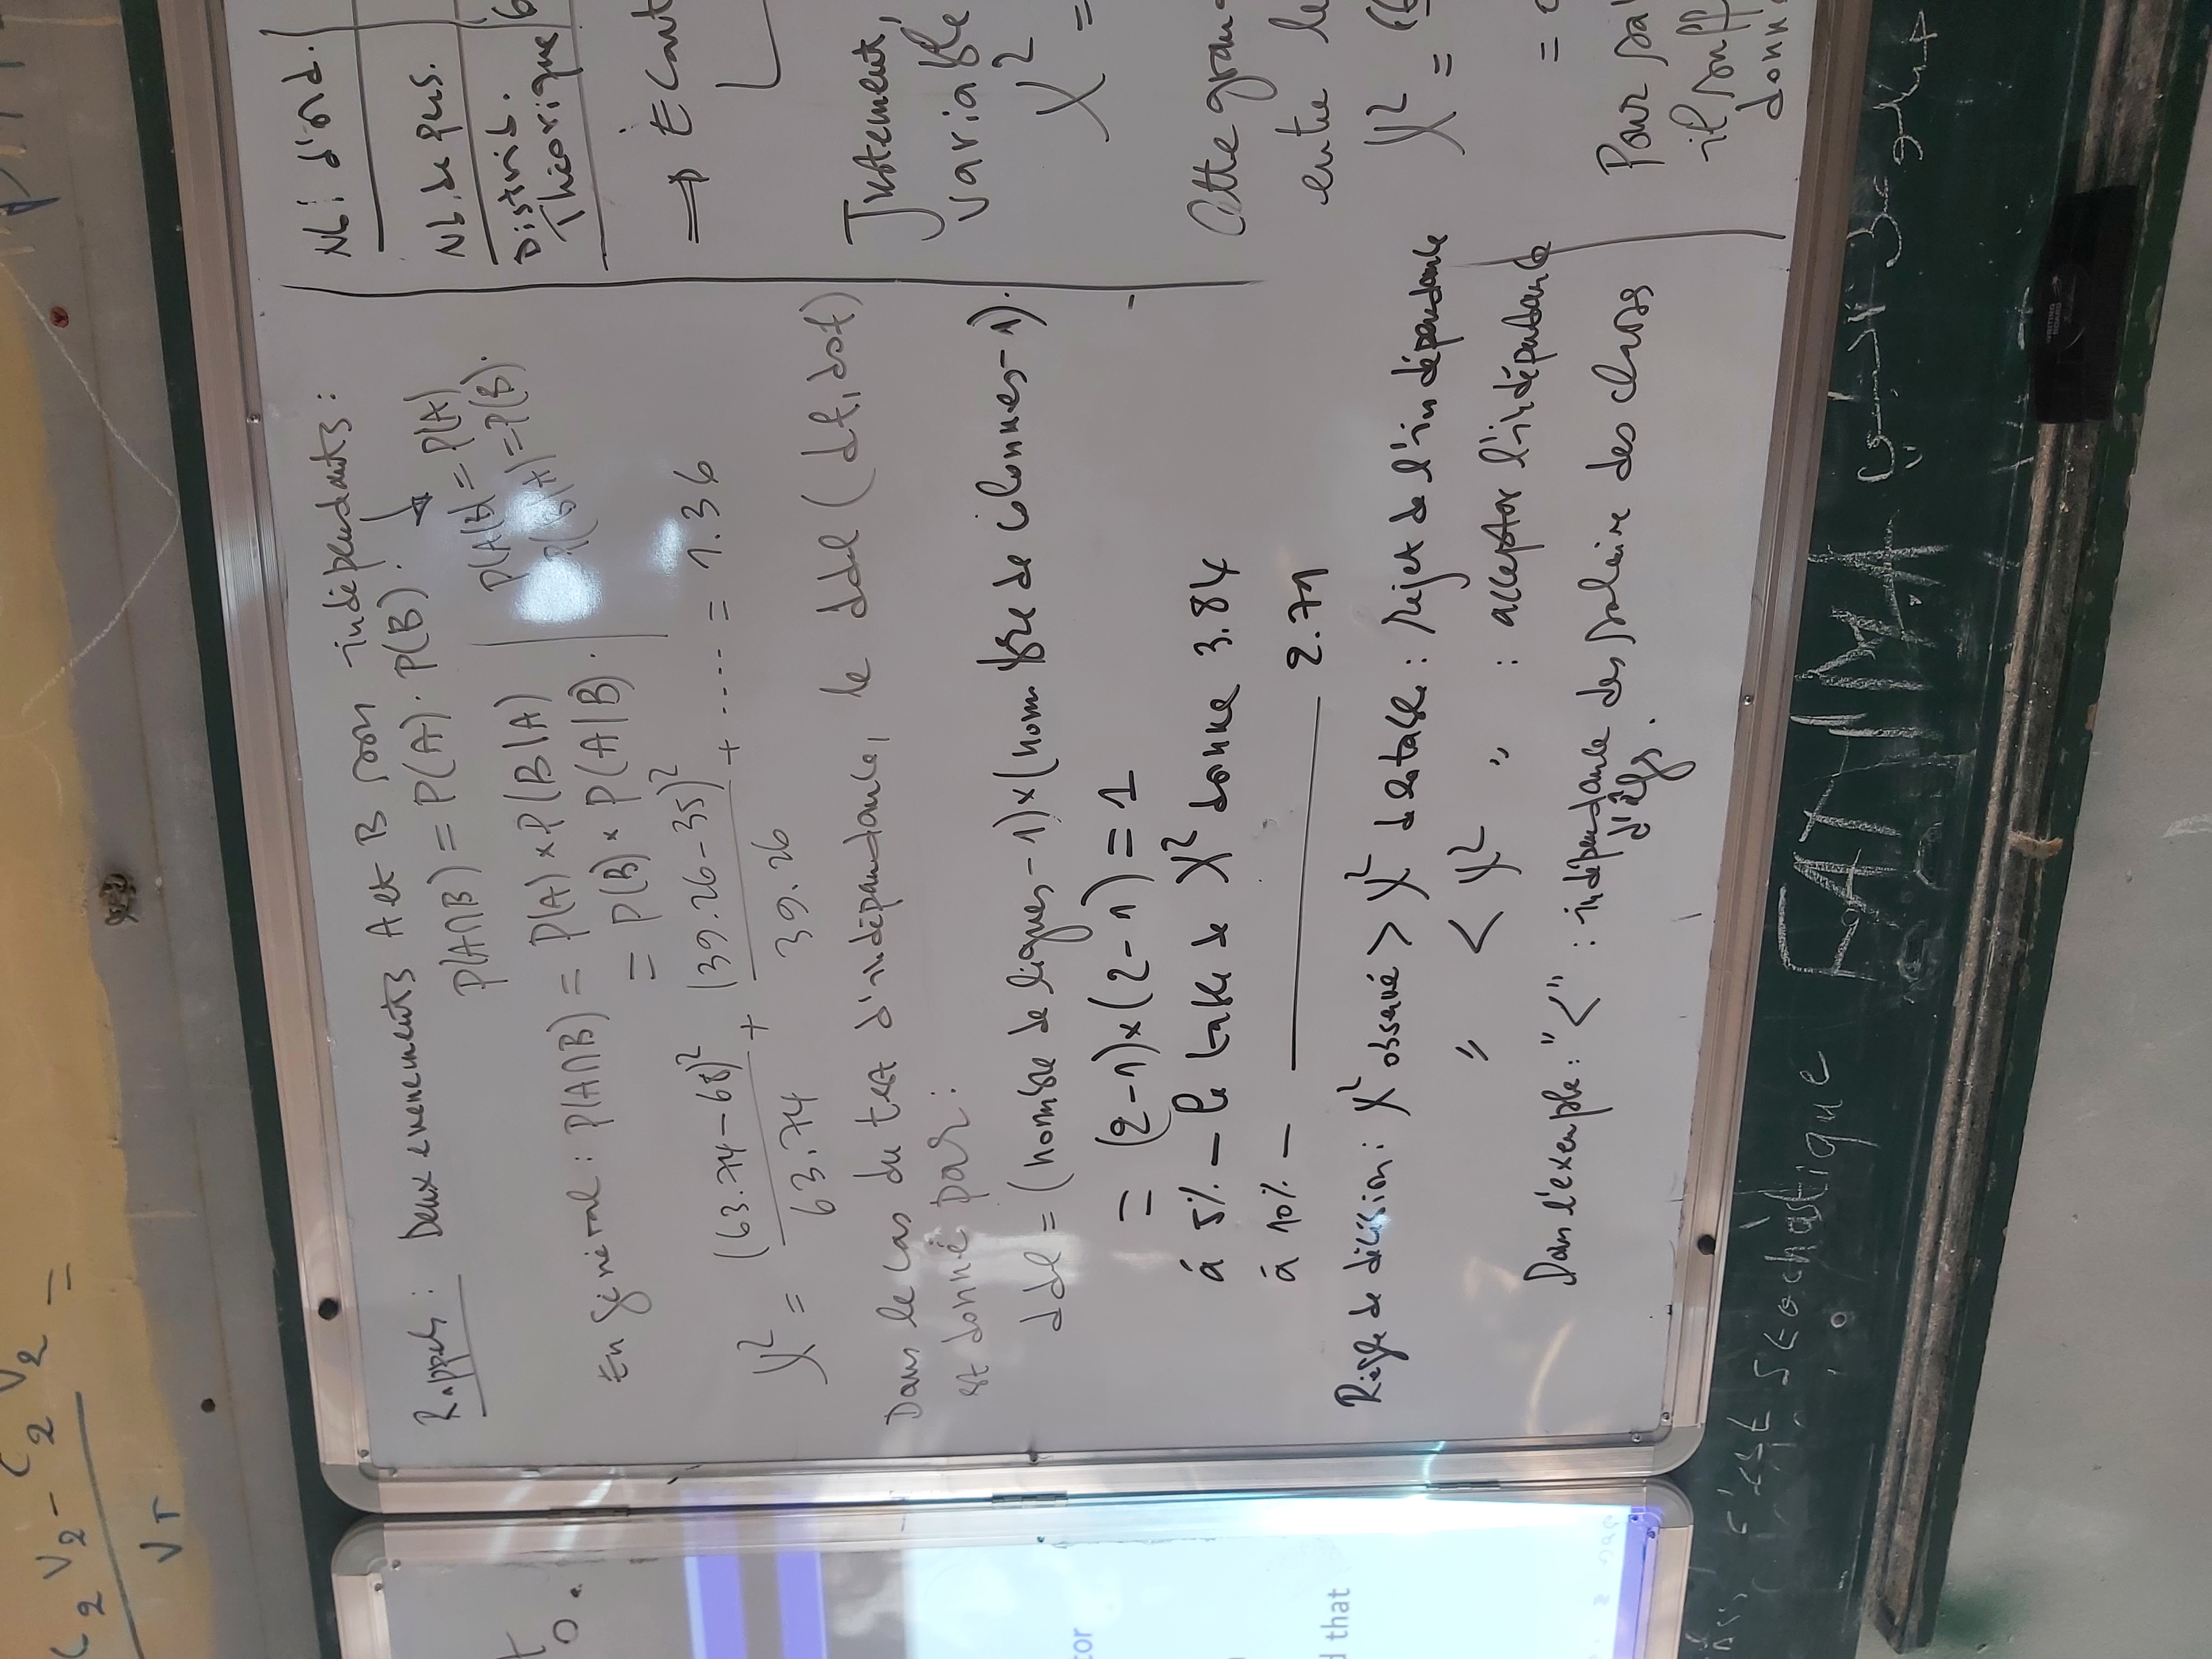 C₂ V₂ - C₂ V₂ =
VT
Rappels : Deux evenements A et B son indépendants :
P(A∩B) = P(A) · P(B) .
P(A|B) = P(A)
P(B|A) = P(B).
En général : P(A∩B) = P(A) × P(B|A)
= P(B) × P(A|B) .
χ² = (63.74 - 68)² / 63.74 + (39.26 - 35)² / 39.26 + .... = 1.36
Dans le cas du test d'indépendance, le ddl (df, dof)
est donné par :
ddl = (nombre de lignes - 1) × (nombre de colonnes - 1).
= (2-1) × (2-1) = 1
à 5% - la table de χ² donne 3.84
à 10% - 2.71
Règle de décision : χ² observé > χ² de la table : rejet de l'indépendance
" < χ² " : accepter l'indépendance
Dans l'exemple : "<" : indépendance des salaire des classes
d'âges .
Nb: d'ord.
Nb. de pers.
Distrib.
Théorique 6
⇒ Ecart
Justement,
variable
χ² =
Cette gran
entre le
χ² = (6
=
Pour sa
il suff
donn
t
0.
tor
d that
c'est stochastique
FATIMA
صلو على النبي
WRITING
BOARD